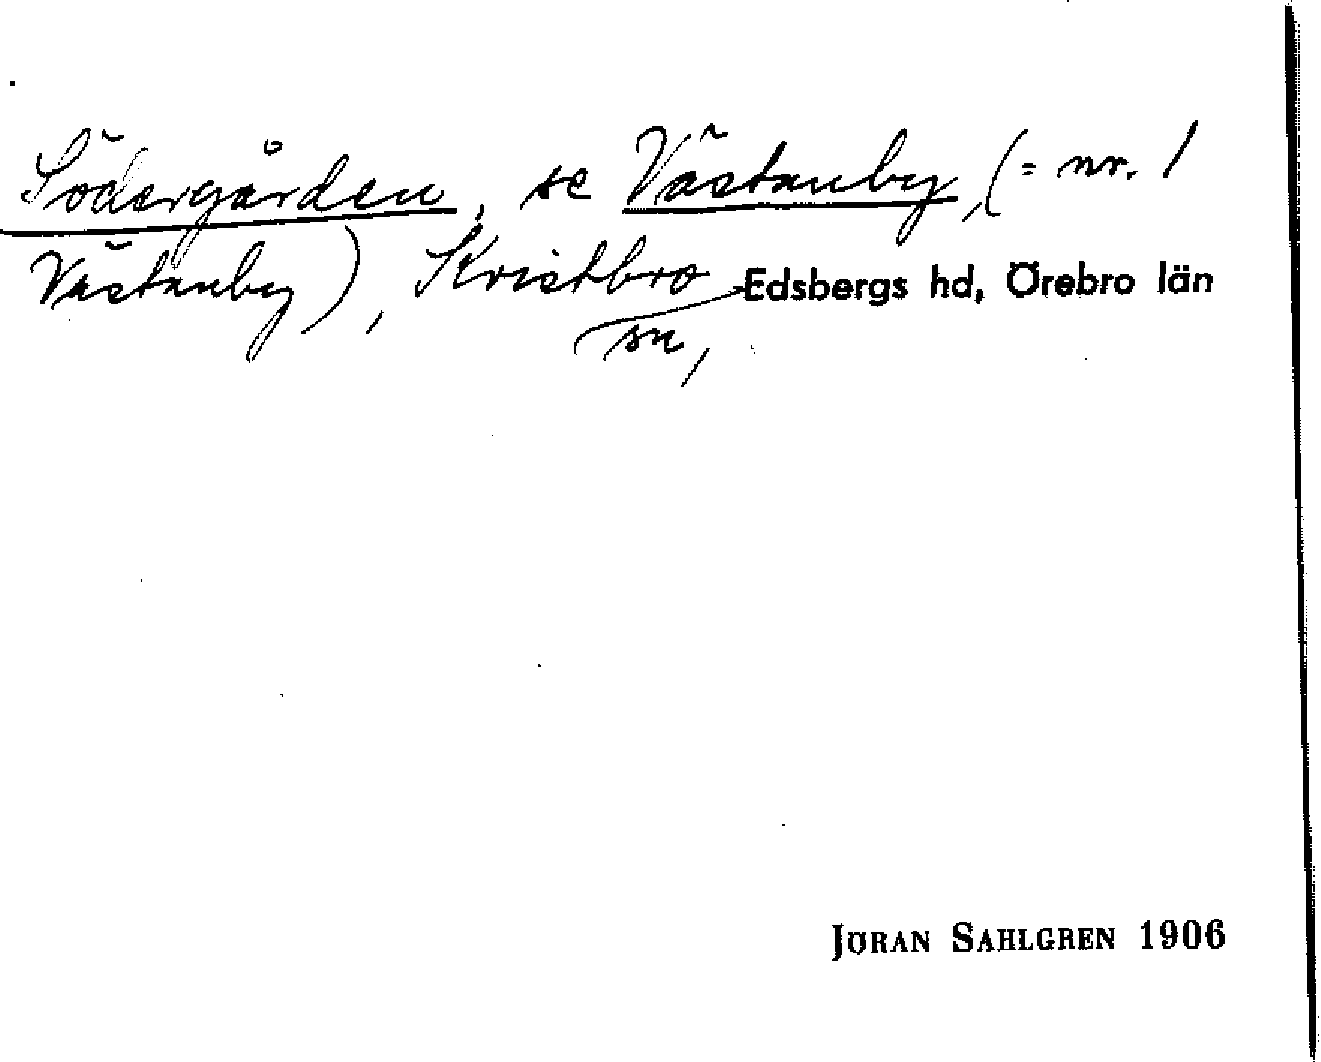 Södergården, se Västanby, (= nr. 1
Västanby), Kvistbro Edsbergs hd, Örebro län
sn,
JÖRAN SAHLGREN 1906